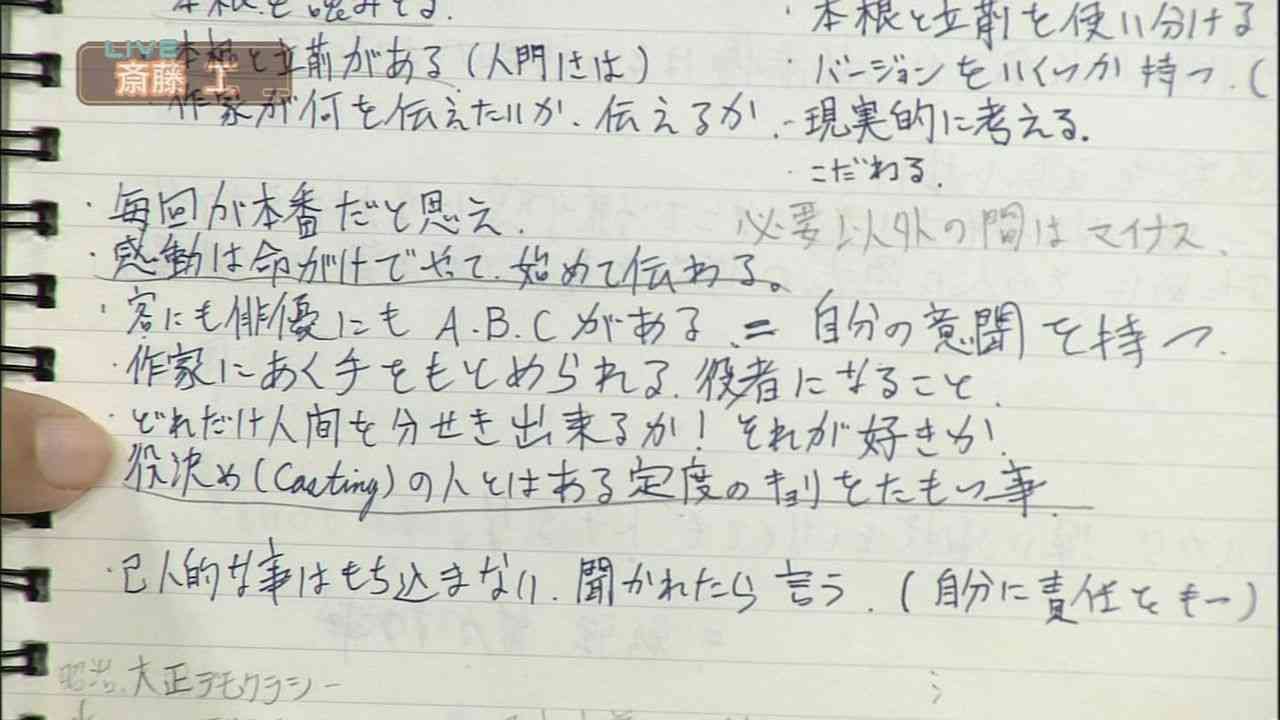 LIVE
斎藤 工
本根と立前がある(人門には)
作家が何を伝えたいか、伝えるか.
・毎回が本番だと思え.
・感動は命がけでやって、始めて伝わる。
・客にも俳優にも A.B.Cがある = 自分の意聞を持つ.
・作家にあく手をもとめられる、役者になること.
・どれだけ人間を分せき出来るか! それが好きか!
・役決め(Casting)の人とはある定度のキョリをたもつ事.
・己人的な事はもち込まない. 聞かれたら言う. (自分に責任をもつ)
昭若、大正デモクラシー
・本根と立前を使い分ける
・バージョンをいくつか持つ.(
-現実的に考える.
・こだわる.
必要以外の間はマイナス.